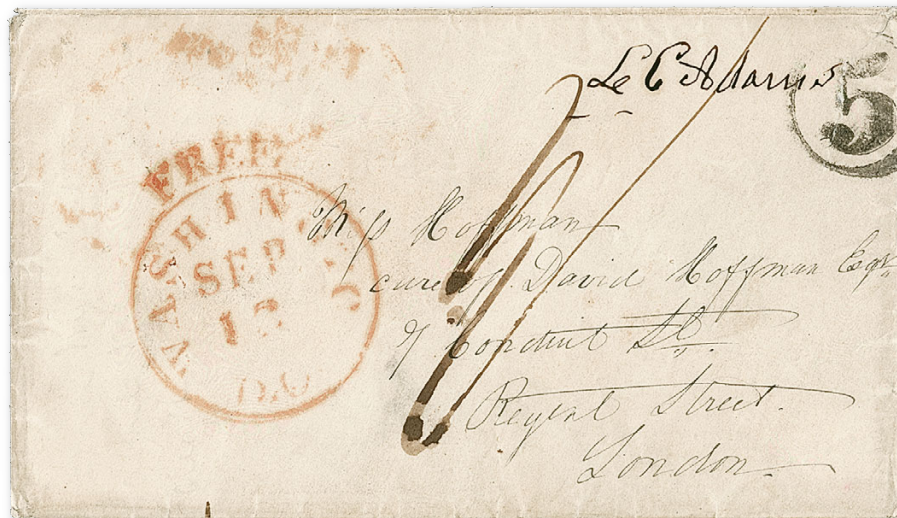 L. C Adams
5
FREE
WASHINGTON
SEP
12
D.C
Miss Hoffman
care of David Hoffman Esqr
Conduit St.
Regent Street.
London